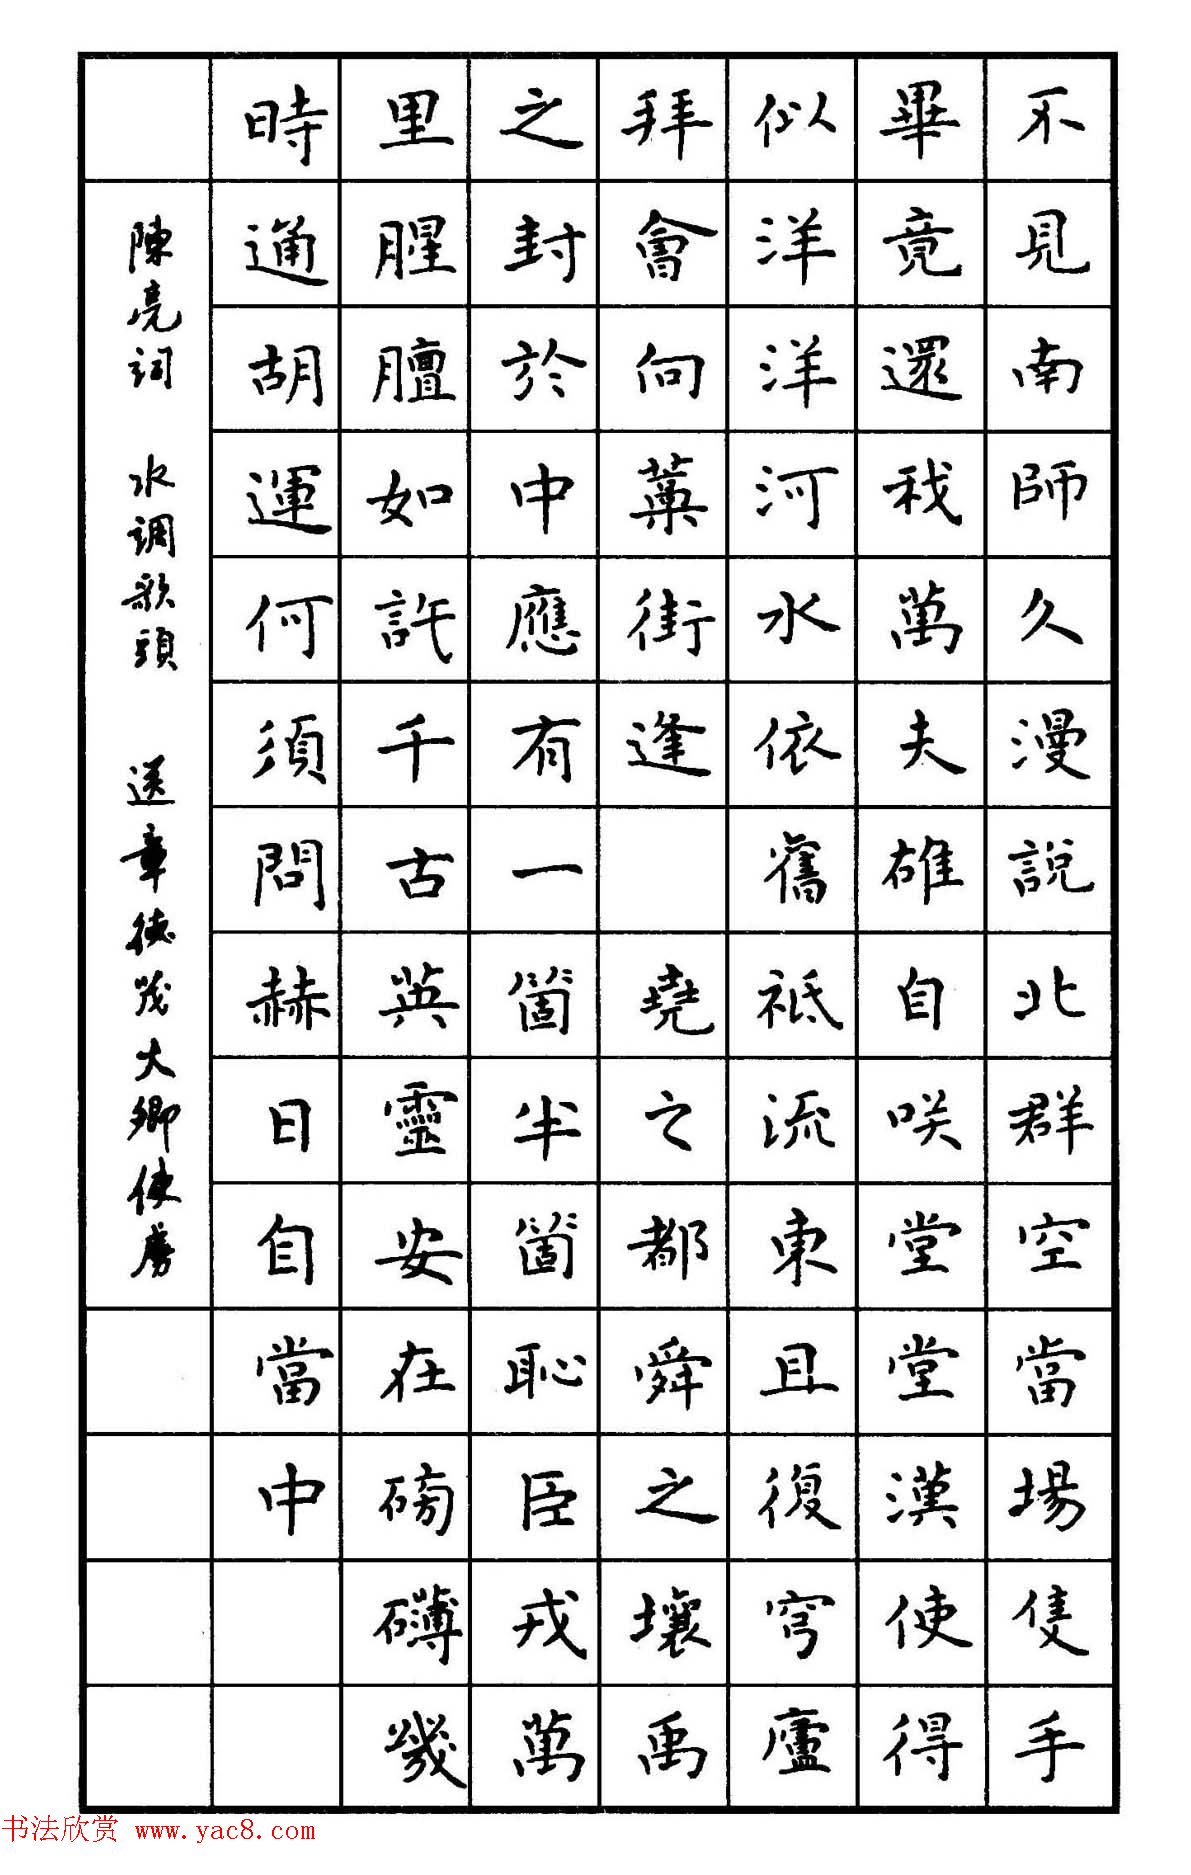 不見南師久漫說北群空當場隻手
畢竟還我萬夫雄自咲堂堂漢使得
似洋洋河水依舊祗流東且復穹廬
拜會向藁街逢 堯之都舜之壤禹
之封於中應有一箇半箇恥臣戎萬
里腥膻如許千古英靈安在磅礴幾
時通胡運何須問赫日自當中
陳亮词 水调歌頭 送章德茂大卿使虜
书法欣赏 www.yac8.com